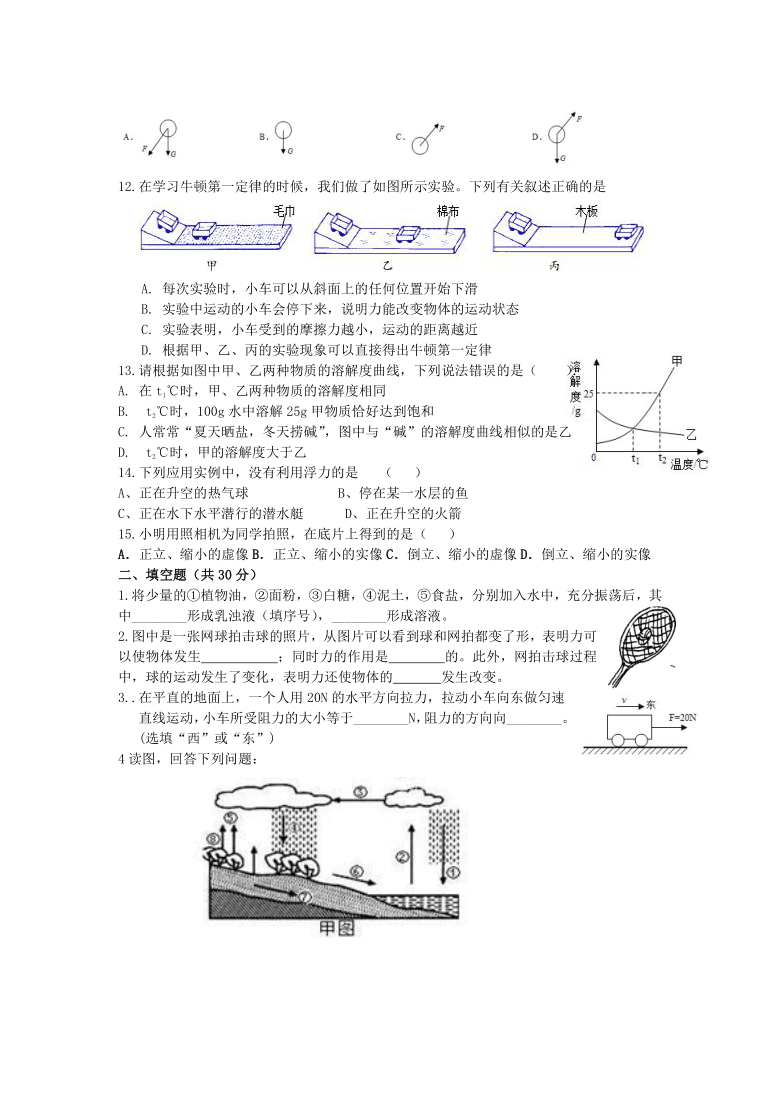 A. F G B. G C. F D. F G
12.在学习牛顿第一定律的时候，我们做了如图所示实验。下列有关叙述正确的是
毛巾 棉布 木板
甲 乙 丙
A. 每次实验时，小车可以从斜面上的任何位置开始下滑
B. 实验中运动的小车会停下来，说明力能改变物体的运动状态
C. 实验表明，小车受到的摩擦力越小，运动的距离越近
D. 根据甲、乙、丙的实验现象可以直接得出牛顿第一定律
13.请根据如图中甲、乙两种物质的溶解度曲线，下列说法错误的是（ ）
A. 在 t₁℃时，甲、乙两种物质的溶解度相同
B. t₂℃时，100g 水中溶解 25g 甲物质恰好达到饱和
C. 人常常“夏天晒盐，冬天捞碱”，图中与“碱”的溶解度曲线相似的是乙
D. t₂℃时，甲的溶解度大于乙
溶解度/g
25
甲
乙
0 t₁ t₂ 温度/℃
14.下列应用实例中，没有利用浮力的是 （ ）
A、正在升空的热气球 B、停在某一水层的鱼
C、正在水下水平潜行的潜水艇 D、正在升空的火箭
15.小明用照相机为同学拍照，在底片上得到的是（ ）
A．正立、缩小的虚像 B．正立、缩小的实像 C．倒立、缩小的虚像 D．倒立、缩小的实像
二、填空题（共 30 分）
1.将少量的①植物油，②面粉，③白糖，④泥土，⑤食盐，分别加入水中，充分振荡后，其
中________形成乳浊液（填序号），________形成溶液。
2.图中是一张网球拍击球的照片，从图片可以看到球和网拍都变了形，表明力可
以使物体发生___________；同时力的作用是________的。此外，网拍击球过程
中，球的运动发生了变化，表明力还使物体的_______发生改变。
3..在平直的地面上，一个人用 20N 的水平方向拉力，拉动小车向东做匀速
直线运动，小车所受阻力的大小等于________N，阻力的方向向________。
(选填“西”或“东”)
v 东
F=20N
4 读图，回答下列问题：
③
④
⑤
⑧
②
①
⑥
⑦
甲图